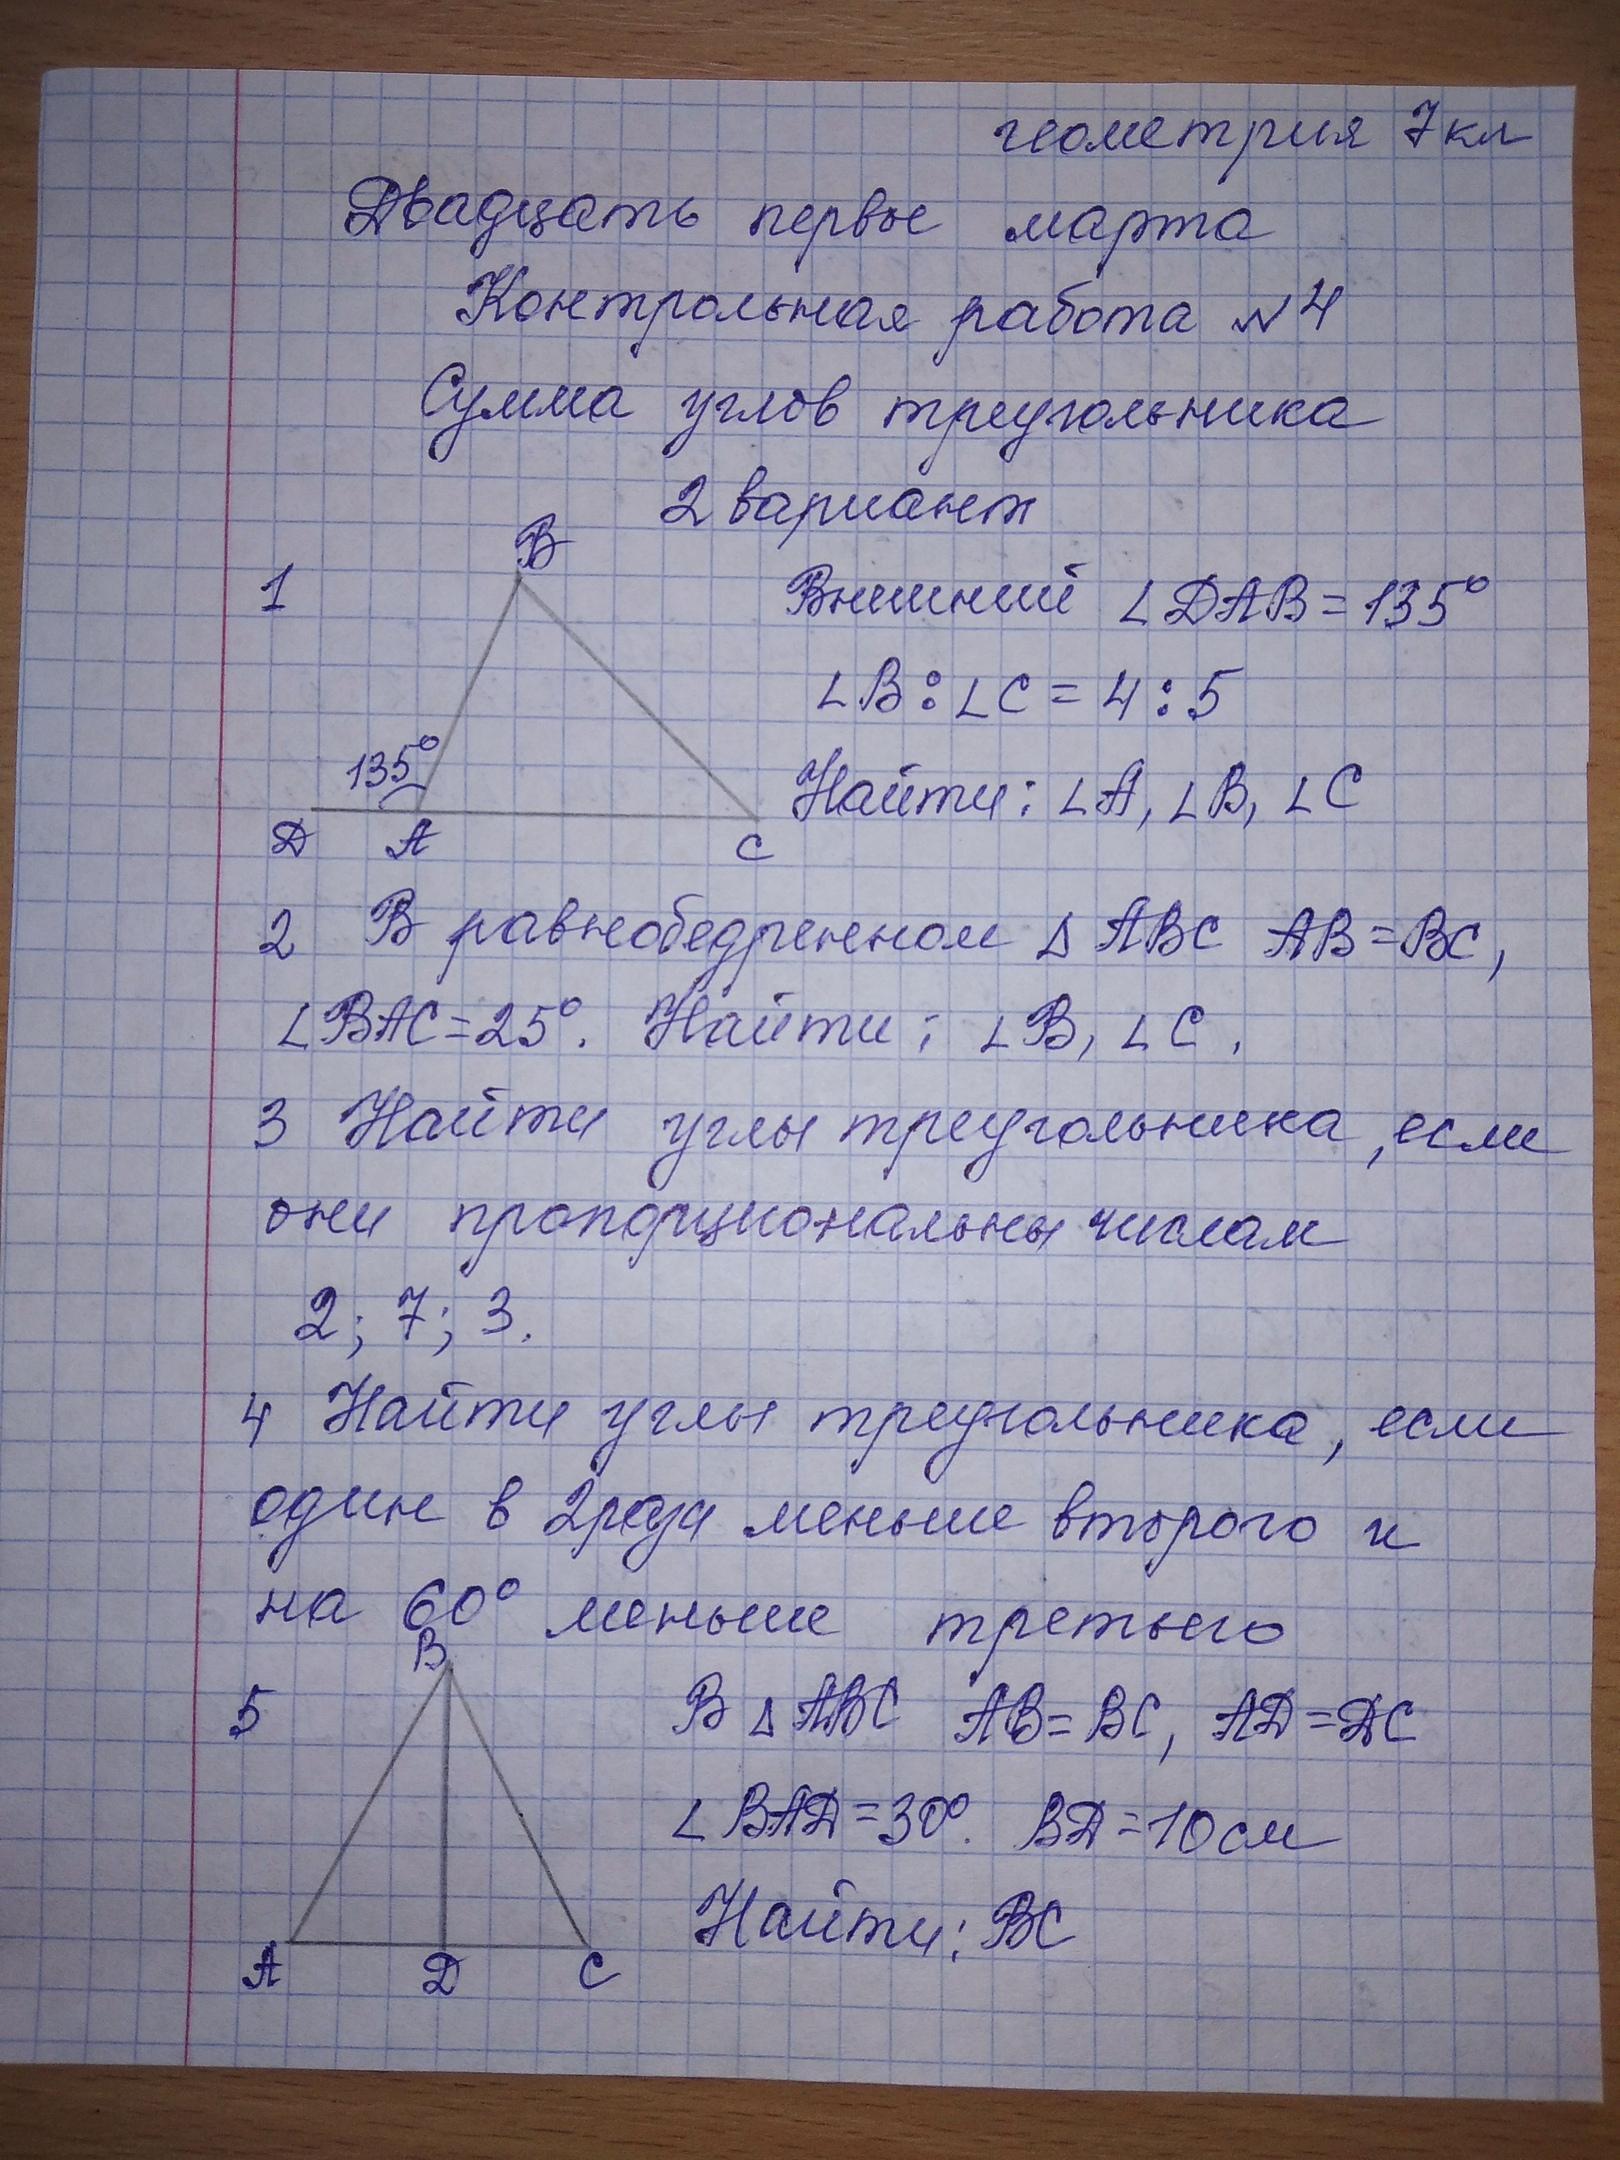 геометрия 7 кл
Двадцать первое марта
Контрольная работа №4
Сумма углов треугольника
2 вариант
B
1
Внешний ∠DAB = 135°
∠B : ∠C = 4 : 5
135°
Найти: ∠A, ∠B, ∠C
D A C
2 В равнобедренном △ ABC AB = BC,
∠BAC = 25°. Найти: ∠B, ∠C.
3 Найти углы треугольника, если
они пропорциональны числам
2; 7; 3.
4 Найти углы треугольника, если
один в 2 раза меньше второго и
на 60° меньше третьего
B
5 В △ ABC AB = BC, AD = DC
∠BAD = 30°. BD = 10 см
Найти: BC
A D C